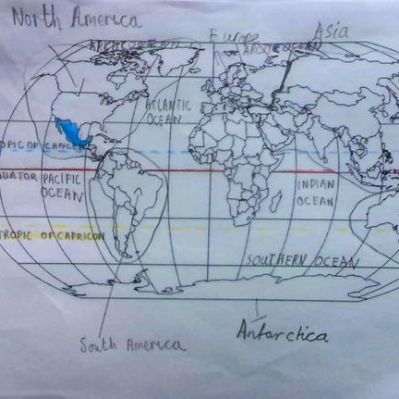 North America
Europe
Asia
ARCTIC OCEAN
ARCTIC OCEAN
ATLANTIC
OCEAN
OPIC OF CANCER
QUATOR
PACIFIC
OCEAN
INDIAN
OCEAN
TROPIC OF CAPRICON
SOUTHERN OCEAN
South America
Antarctica